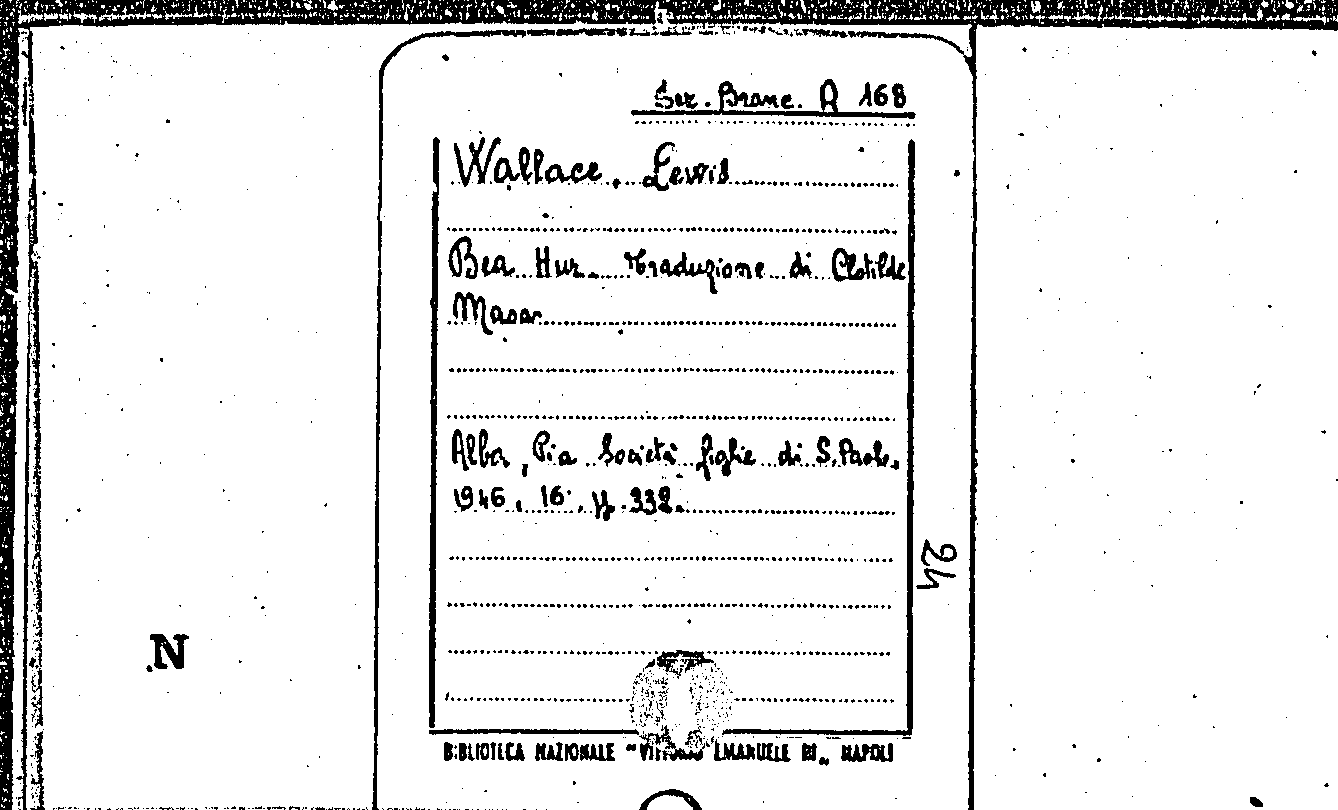 Sez. Branc. A 168
Wallace, Lewis
Ben Hur. Traduzione di Clotilde
Masar
Alba, Pia Società figlie di S. Paolo,
1946, 16°, p. 332.
24
N
BIBLIOTECA NAZIONALE "VITTORIO EMANUELE III„ NAPOLI